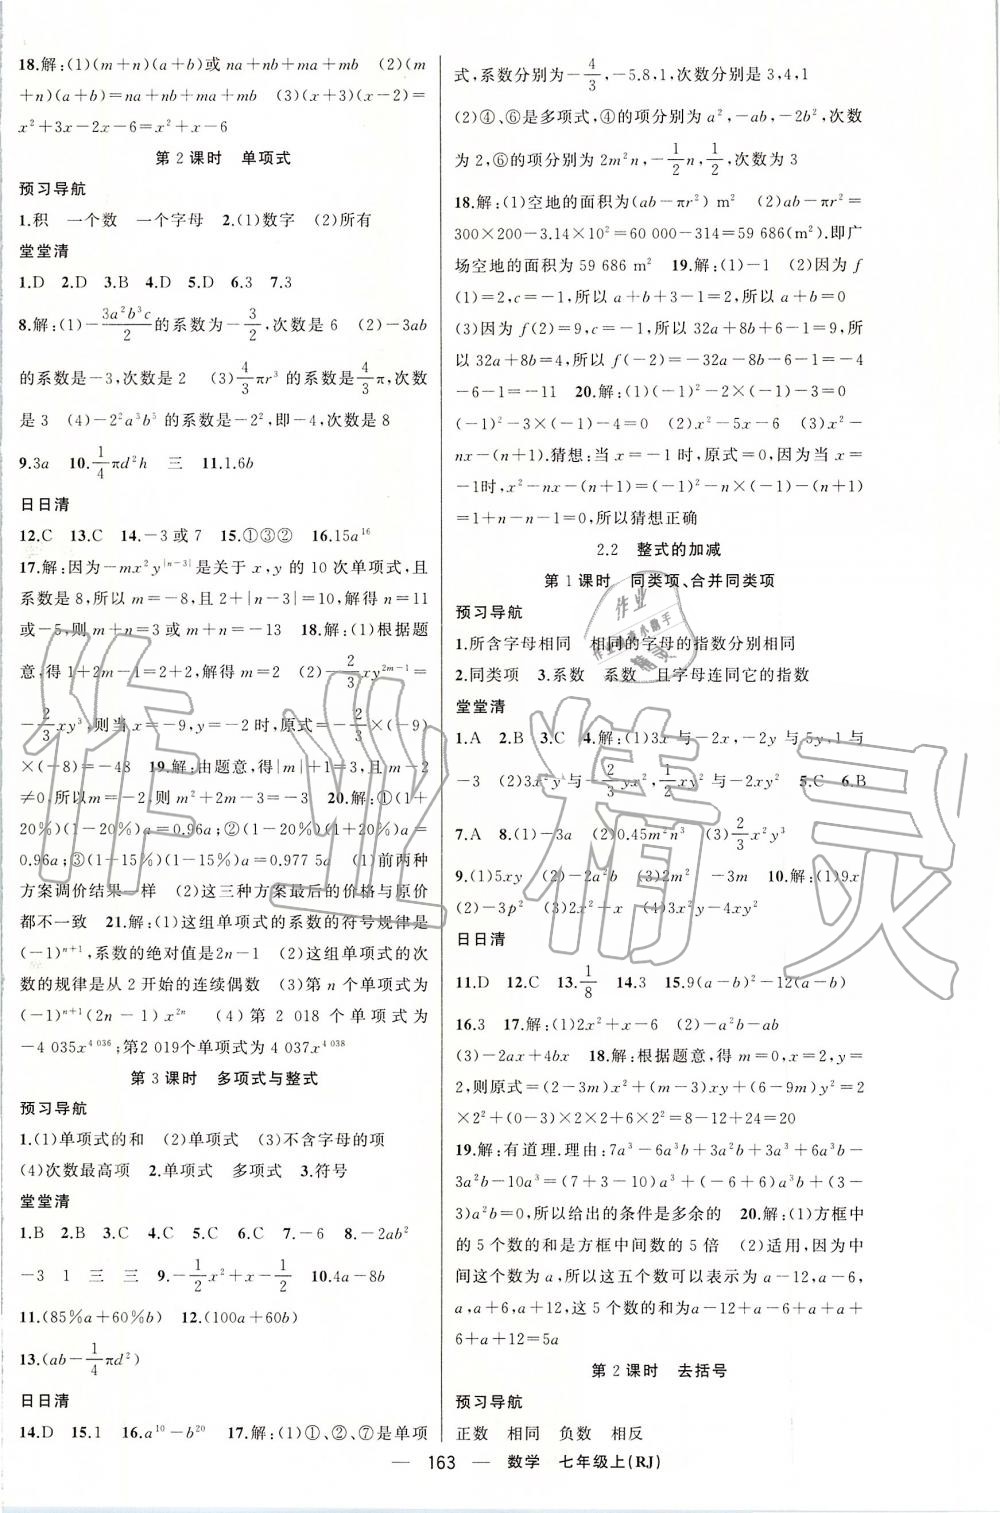 18.解:(1)(m+n)(a+b)或 na+nb+ma+mb (2)(m
+n)(a+b)=na+nb+ma+mb (3)(x+3)(x-2)=
x²+3x-2x-6=x²+x-6
第2课时 单项式
预习导航
1.积 一个数 一个字母 2.(1)数字 (2)所有
堂堂清
1.D 2.D 3.B 4.D 5.D 6.3 7.3
8.解:(1)-3a²b³c/2的系数为-3/2,次数是6 (2)-3ab
的系数是-3,次数是2 (3)4/3πr³的系数是4/3π,次数
是3 (4)-2²a³b⁵的系数是-2²,即-4,次数是8
9.3a 10.1/4πd²h 三 11.1.6b
日日清
12.C 13.C 14.-3或7 15.①③② 16.15a¹⁶
17.解:因为-mx²y^|n-3|是关于x,y的10次单项式,系
数是8,所以m=-8,且2+|n-3|=10,解得n=11
或-5,则m+n=3或m+n=-13 18.解:(1)根据题
意,得1+2m-1=2+2,解得m=2 (2)-2/3xy^(2m-1)=
-2/3xy³,则当x=-9,y=-2时,原式=-2/3×(-9)
×(-8)=-48 19.解:由题意,得|m|+1=3,且m-2
≠0,所以m=-2,则m²+2m=0 20.解:①(1+
20%)(1-20%)a=0.96a;②(1-20%)(1+20%)a=
0.96a;③(1+15%)(1-15%)a=0.977 5a (1)前两种
方案调价结果一样 (2)这三种方案最后的价格与原价
都不一致 21.解:(1)这组单项式的系数的符号规律是
(-1)ⁿ⁺¹,系数的绝对值是2n-1 (2)这组单项式的次
数的规律是从2开始的连续偶数 (3)第n个单项式为
(-1)ⁿ⁺¹(2n-1)x²ⁿ (4)第2 018个单项式为
-4 035x⁴ ⁰³⁶;第2 019个单项式为4 037x⁴ ⁰³⁸
第3课时 多项式与整式
预习导航
1.(1)单项式的和 (2)单项式 (3)不含字母的项
(4)次数最高项 2.单项式 多项式 3.符号
堂堂清
1.B 2.B 3.C 4.C 5.C 6.C 7.-6 8.-2ab²
-3 1 三 三 9.-1/2x²+x-1/2 10.4a-8b
11.(85%a+60%b) 12.(100a+60b)
13.(ab-1/4πd²)
日日清
14.D 15.1 16.a¹⁰-b²⁰ 17.解:(1)①、②、⑦是单项
式,系数分别为-4/3,-5.8,1,次数分别是3,4,1
(2)④、⑥是多项式,④的项分别为a²,-ab,-2b²,次数
为2,⑥的项分别为2m²n,-1/2n,1/2,次数为3
18.解:(1)空地的面积为(ab-πr²) m² (2)ab-πr²=
300×200-3.14×10²=60 000-314=59 686(m²).即广
场空地的面积为59 686 m² 19.解:(1)-1 (2)因为f
(1)=2,c=-1,所以a+b+3-1=2,所以a+b=0
(3)因为f(2)=9,c=-1,所以32a+8b+6-1=9,所
以32a+8b=4,所以f(-2)=-32a-8b-6-1=-4
-6-1=-11 20.解:(1)(-1)²-2×(-1)-3=0
(-1)²-3×(-1)-4=0 (2)x²-5x-6 (3)x²-
nx-(n+1).猜想:当x=-1时,原式=0,因为当x=
-1时,x²-nx-(n+1)=(-1)²-n×(-1)-(n+1)
=1+n-n-1=0,所以猜想正确
2.2 整式的加减
第1课时 同类项、合并同类项
预习导航
1.所含字母相同 相同的字母的指数分别相同
2.同类项 3.系数 系数 且字母连同它的指数
堂堂清
1.A 2.B 3.C 4.解:(1)3x与-2x,-2y与5y,1与
-3 (2)3x²y与-2/3yx²,1/2xy²与-2xy² 5.C 6.B
7.A 8.(1)-3a (2)0.45m²n³ (3)2/3x²y³
9.(1)5xy (2)-2a²b (3)2m² -3m 10.解:(1)9x
(2)-3p² (3)2-x (4)3x²y-4xy²
日日清
11.D 12.C 13.1/8 14.3 15.9(a-b)²-12(a-b)
16.3 17.解:(1)2x²+x-6 (2)-a²b-ab
(3)-2ax+4bx 18.解:根据题意,得m=0,x=2,y=
2,则原式=(2-3m)x²+(m-3)xy+(6-9m)y²=2
×2²+(0-3)×2×2+6×2²=8-12+24=20
19.解:有道理.理由:7a³-6a³b+3a²b+3a³+6a³b-
3a²b-10a³=(7+3-10)a³+(-6+6)a³b+(3-
3)a²b=0,所以给出的条件是多余的 20.解:(1)方框中
的5个数的和是方框中间数的5倍 (2)适用,因为中
间这个数为a,所以这五个数可以表示a-12,a-6,
a,a+6,a+12,这5个数的和为a-12+a-6+a+a+
6+a+12=5a
第2课时 去括号
预习导航
正数 相同 负数 相反
— 163 — 数学 七年级上(RJ)
作业精灵